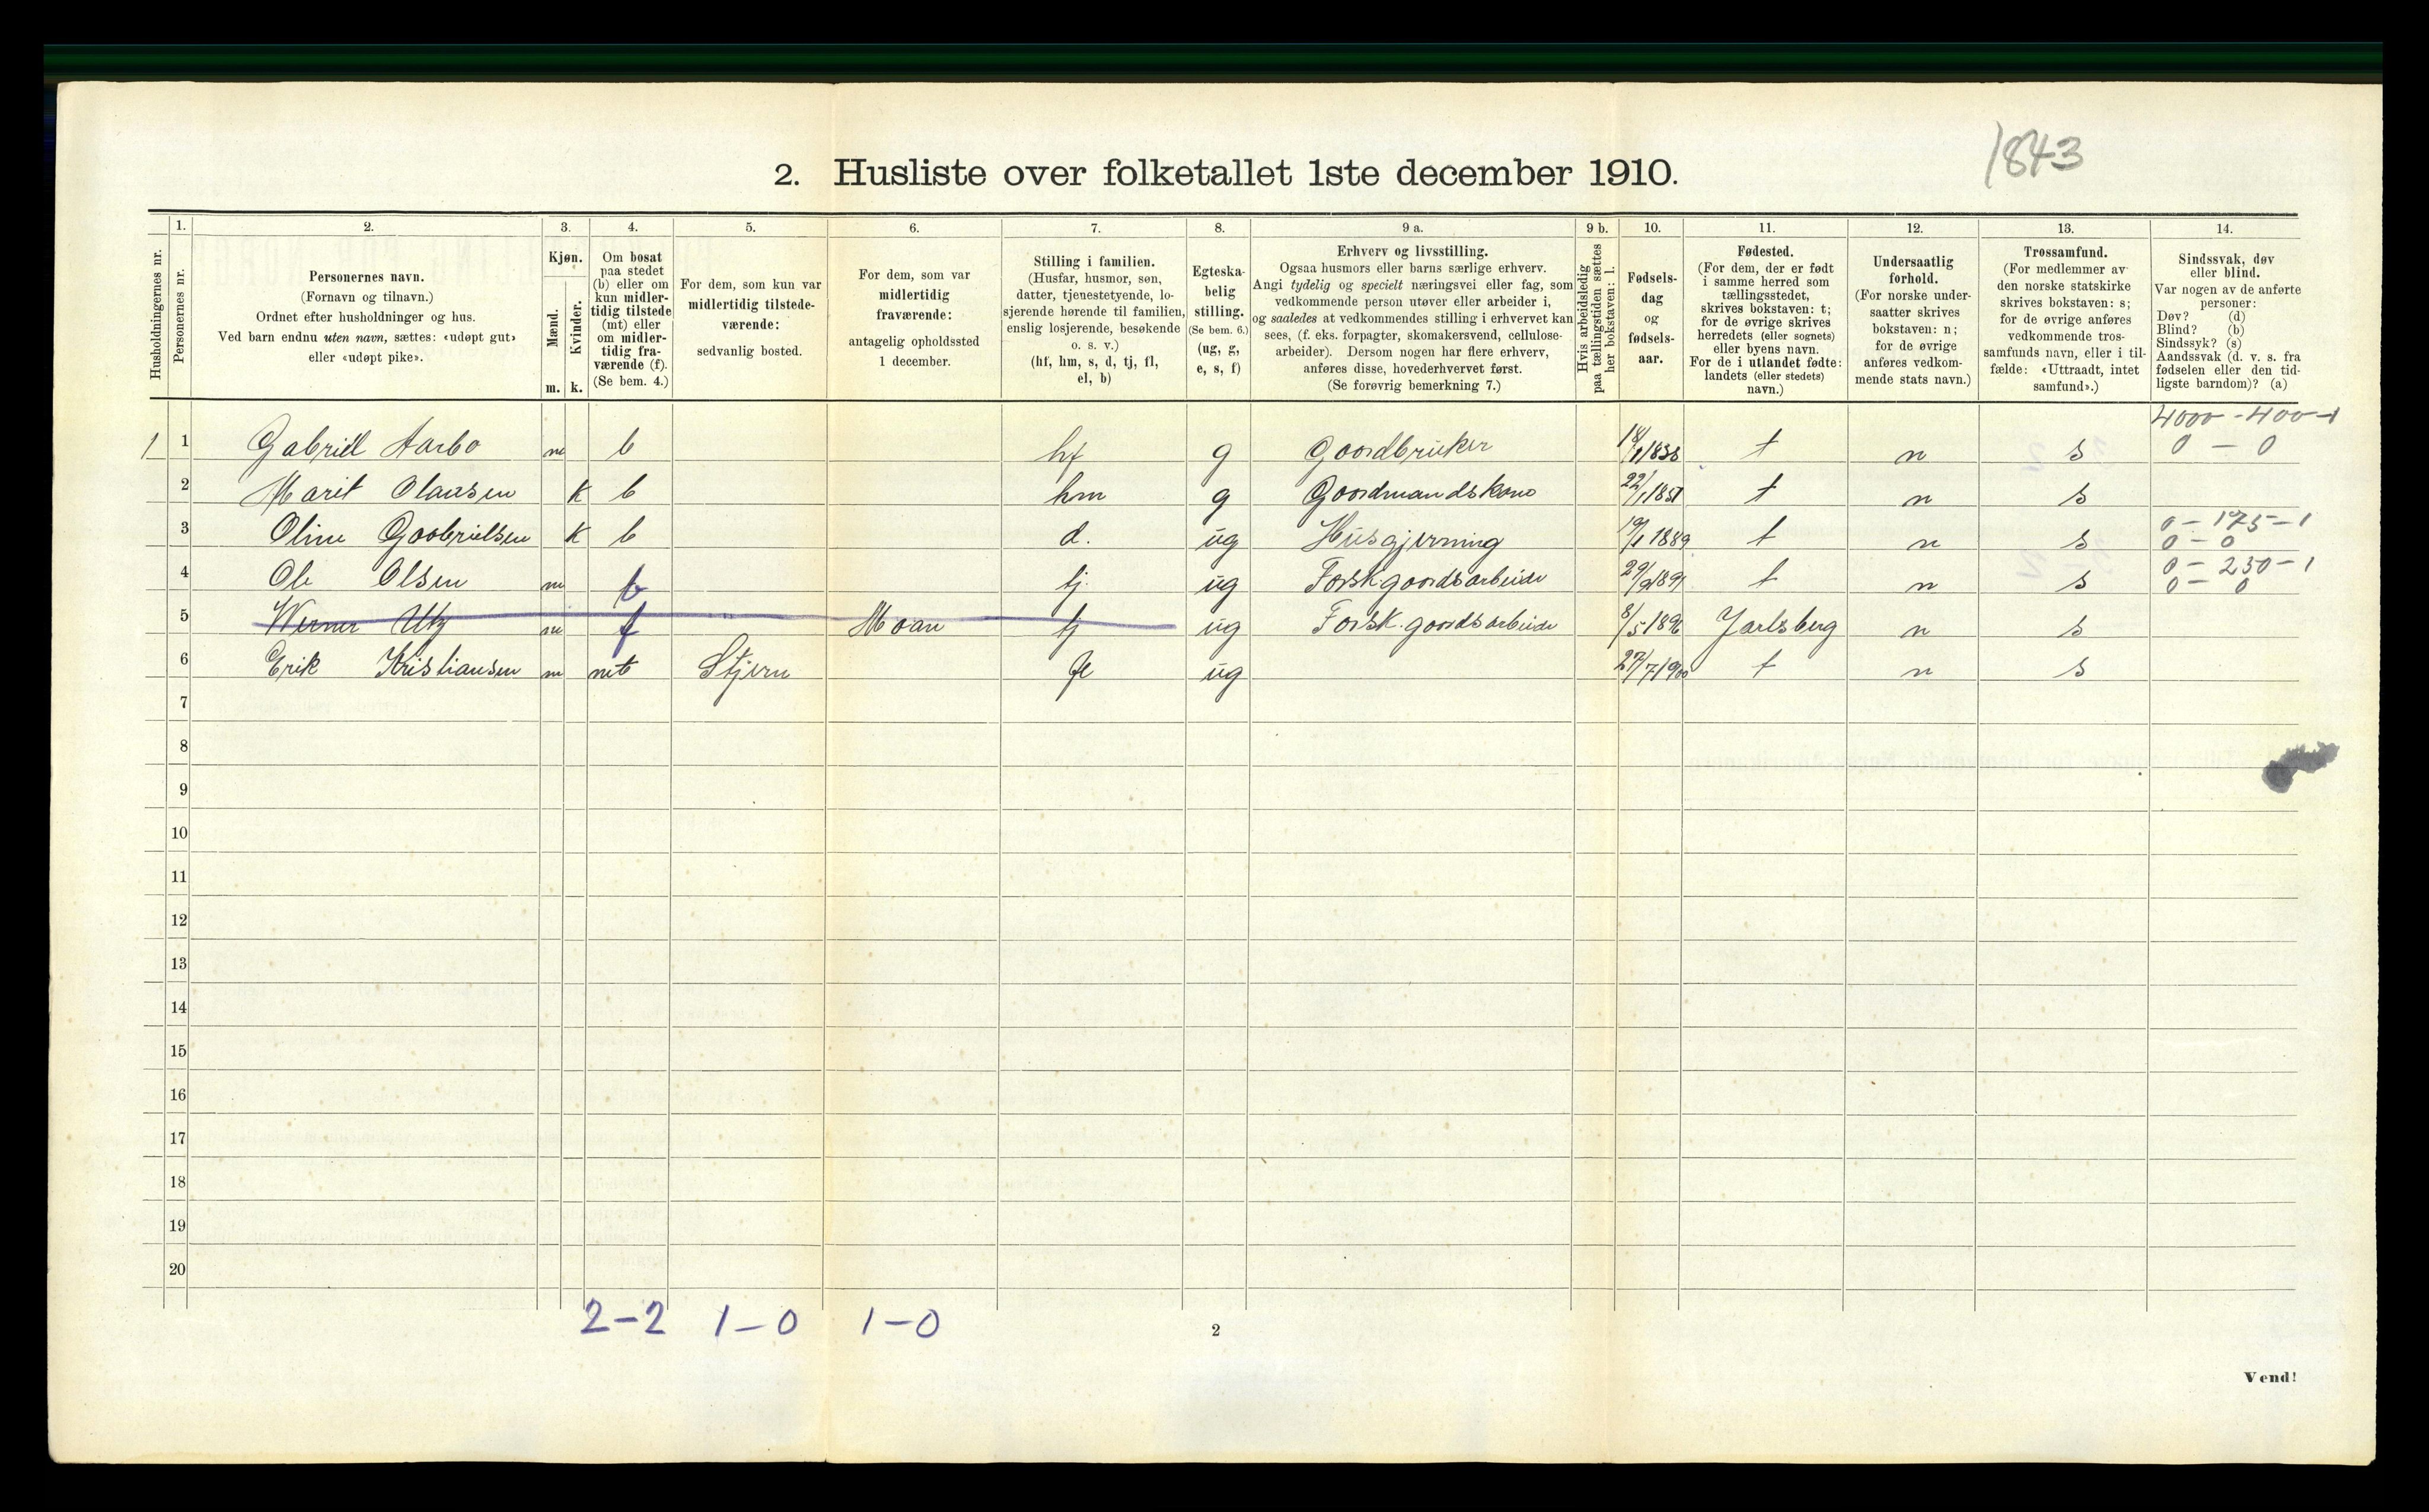 1843
2. Husliste over folketallet 1ste december 1910.
Husholdningernes nr.
1.
Personernes nr.
2.
Personernes navn.
(Fornavn og tilnavn.)
Ordnet efter husholdninger og hus.
Ved barn endnu uten navn, sættes: «udøpt gut»
eller «udøpt pike».
3.
Kjøn.
Mænd.
Kvinder.
m. k.
4.
Om bosat
paa stedet
(b) eller om
kun midler-
tidig tilstede
(mt) eller
om midler-
tidig fra-
værende (f).
(Se bem. 4.)
5.
For dem, som kun var
midlertidig tilstede-
værende:
sedvanlig bosted.
6.
For dem, som var
midlertidig
fraværende:
antagelig opholdssted
1 december.
7.
Stilling i familien.
(Husfar, husmor, søn,
datter, tjenestetyende, lo-
sjerende hørende til familien,
enslig losjerende, besøkende
o. s. v.)
(hf, hm, s, d, tj, fl,
el, b)
8.
Egteska-
belig
stilling.
(Se bem. 6.)
(ug, g,
e, s, f)
9 a.
Erhverv og livsstilling.
Ogsaa husmors eller barns særlige erhverv.
Angi tydelig og specielt næringsvei eller fag, som
vedkommende person utøver eller arbeider i,
og saaledes at vedkommendes stilling i erhvervet kan
sees, (f. eks. forpagter, skomakersvend, cellulose-
arbeider). Dersom nogen har flere erhverv,
anføres disse, hovederhvervet først.
(Se forøvrig bemerkning 7.)
9 b.
Hvis arbeidsledig
paa tællingstiden sættes
her bokstaven: l.
10.
Fødsels-
dag
og
fødsels-
aar.
11.
Fødested.
(For dem, der er født
i samme herred som
tællingsstedet,
skrives bokstaven: t;
for de øvrige skrives
herredets (eller sognets)
eller byens navn.
For de i utlandet fødte:
landets (eller stedets)
navn.)
12.
Undersaatlig
forhold.
(For norske under-
saatter skrives
bokstaven: n;
for de øvrige
anføres vedkom-
mende stats navn.)
13.
Trossamfund.
(For medlemmer av
den norske statskirke
skrives bokstaven: s;
for de øvrige anføres
vedkommende tros-
samfunds navn, eller i til-
fælde: «Uttraadt, intet
samfund».)
14.
Sindssvak, døv
eller blind.
Var nogen av de anførte
personer:
Døv? (d)
Blind? (b)
Sindssyk? (s)
Aandssvak (d. v. s. fra
fødselen eller den tid-
ligste barndom)? (a)
4000 - 400 - 1
1 1 Gabriell Aarbo m b hf g Goordbruker 18/1 1838 t n s 0 - 0
2 Marit Olaussen k b hm g Goordmandskone 22/1 1851 t n s
0 - 175 - 1
3 Oline Goobrielsen k b d. ug Husgjerning 19/1 1889 t n s 0 - 0
0 - 230 - 1
4 Ole Olsen m b tj. ug Forsk. goordsarbeide 29/9 1891 t n s 0 - 0
5 Werner Utz m f Moan tj ug Forsk. goordsarbeide 8/5 1896 Jarlsberg n s
6 Erik Kristiansen m mt Stjern fl ug 27/7 1900 t n s
7
8
9
10
11
12
13
14
15
16
17
18
19
20
2-2 1-0 1-0
2
Vend!